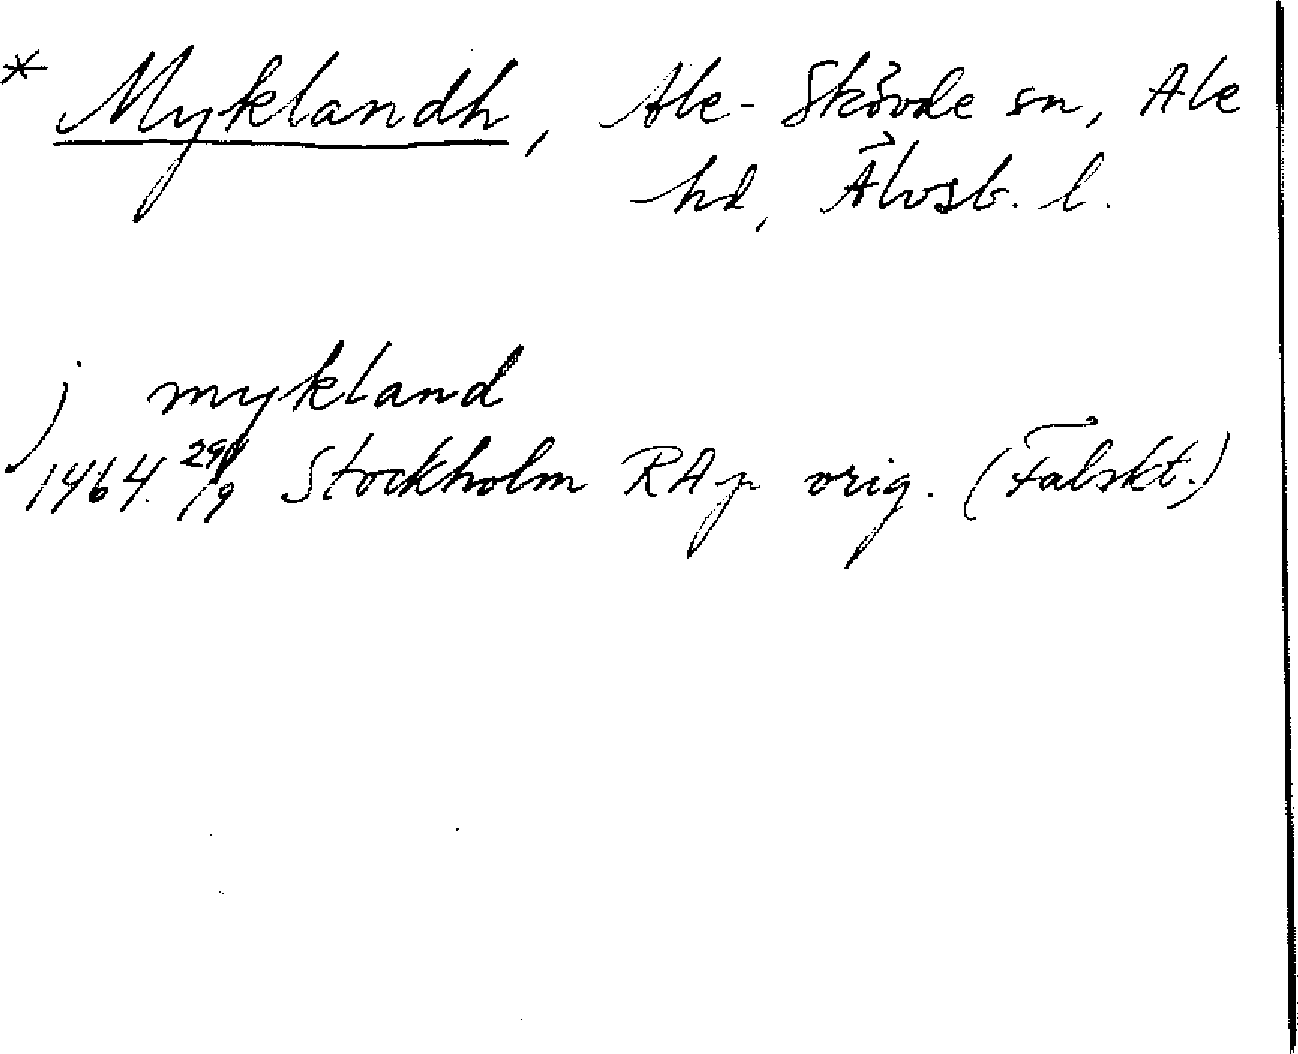 * Myklandh, Ale-Skövde sn, Ale
hd, Älvsb. l.
j mykland
1464. 29/9 Stockholm RAp orig. (Falskt.)